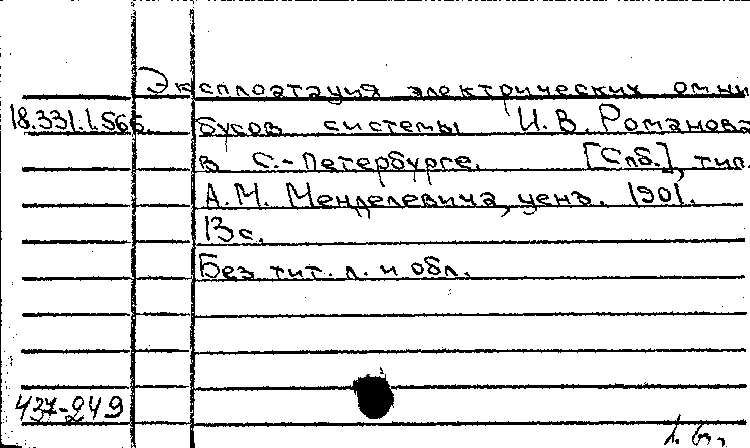 Эксплоатация электрических омни
18.331.1.566. бусов системы И.В. Романова
в С.-Петербурге. [Спб.], тип.
А.М. Менделевича, ценз. 1901.
13 с.
Без тит. л. и обл.
437-249